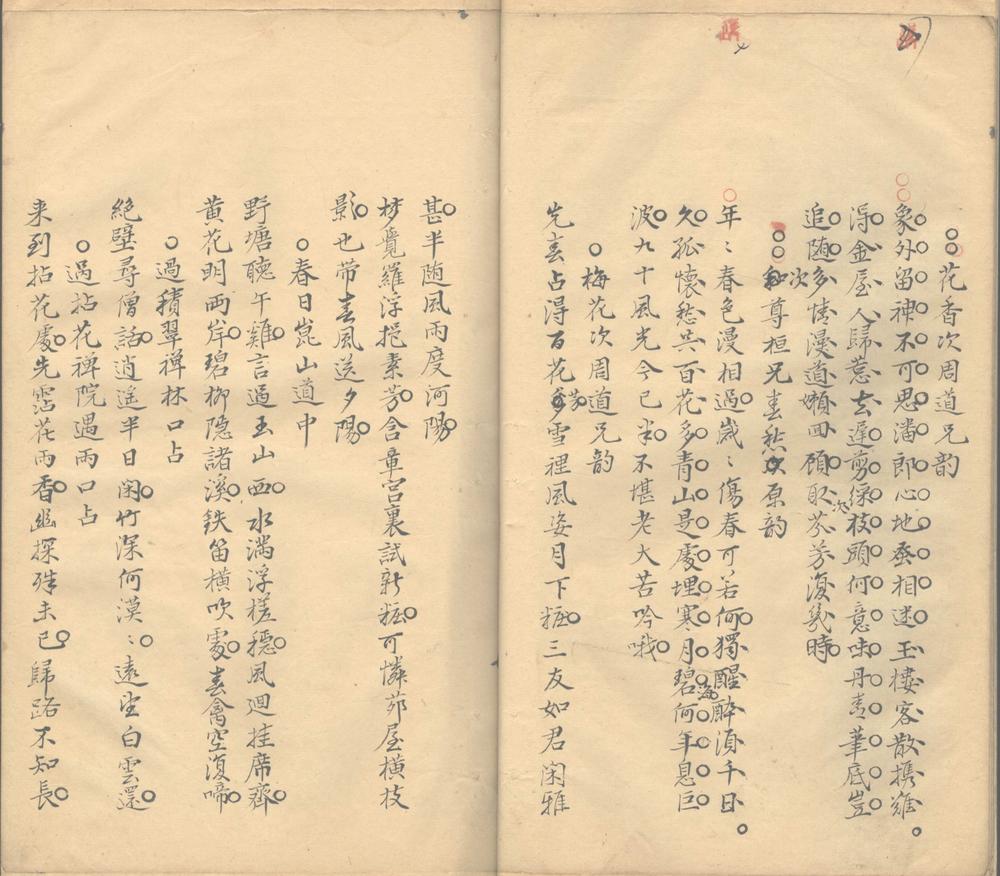 花香次周道兄韵
象外留神不可思潘郎心地丞相迷玉樓客散攜難
淂金屋人歸惹去遲剪綵枝頭何意味丹青筆底豈
追随多情漫道嬾回顧取次芬芳復幾時
次尊桓兄春愁原韵
年〻春色漫相過歲〻傷春可若何獨醒醉須千日
久孤懷愁共百花多青山是處埋寒月碧海何年息巨
波九十風光今已半不堪老大苦吟哦
梅花次周道兄韵
先春占淂百花芳雪裡風姿月下粧三友如君闲雅
甚半随風雨度河陽
梦覺羅浮挹素芳含章宫裏試新粧可憐茆屋横枝
影也带春風送夕陽
春日崑山道中
野塘聽午雞言過玉山西水满浮槎穩風迴挂席齊
黄花明兩岸碧柳隐諸溪鉄笛横吹處春禽空復啼
過積翠禅林口占
絶壁尋僧話逍遥半日闲竹深何漠〻遠望白雲還
過拈花禅院遇雨口占
来到拈花處先霑花雨香幽探殊未已歸路不知長